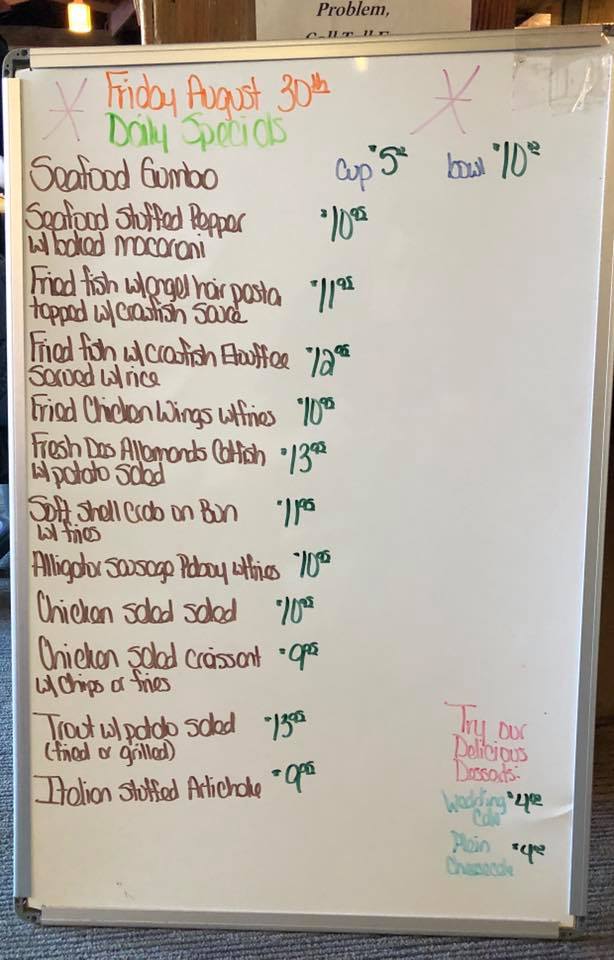 Problem,
Friday August 30th
Daily Specials
Seafood Gumbo cup $5.00 bowl $10.00
Seafood Stuffed Pepper $10.95
w/ baked macaroni
Fried fish w/ angel hair pasta $11.95
topped w/ crawfish sauce
Fried fish w/ crawfish Etouffee $12.95
served w/ rice
Fried Chicken Wings w/ fries $10.95
Fresh Des Allemands Catfish $13.95
w/ potato salad
Soft Shell Crab on Bun $11.95
w/ fries
Alligator sausage Poboy w/ fries $10.95
Chicken salad salad $10.95
Chicken salad craissant $9.95
w/ chips or fries
Trout w/ potato salad $13.95
(fried or grilled)
Italian Stuffed Artichoke $9.95
Try our
Delicious
Desserts:
Wedding $4.00
Cake
Plain $4.00
Cheesecake